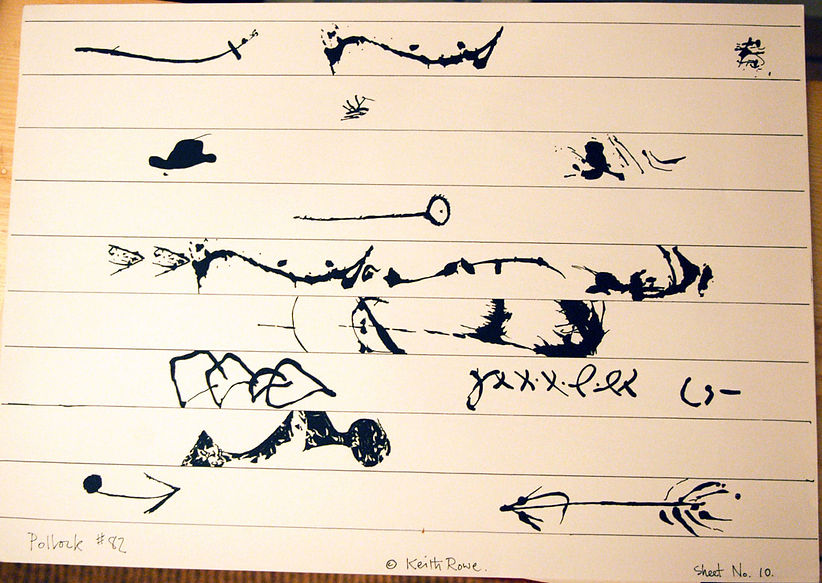 Pollock #82
© Keith Rowe.
Sheet No. 10.